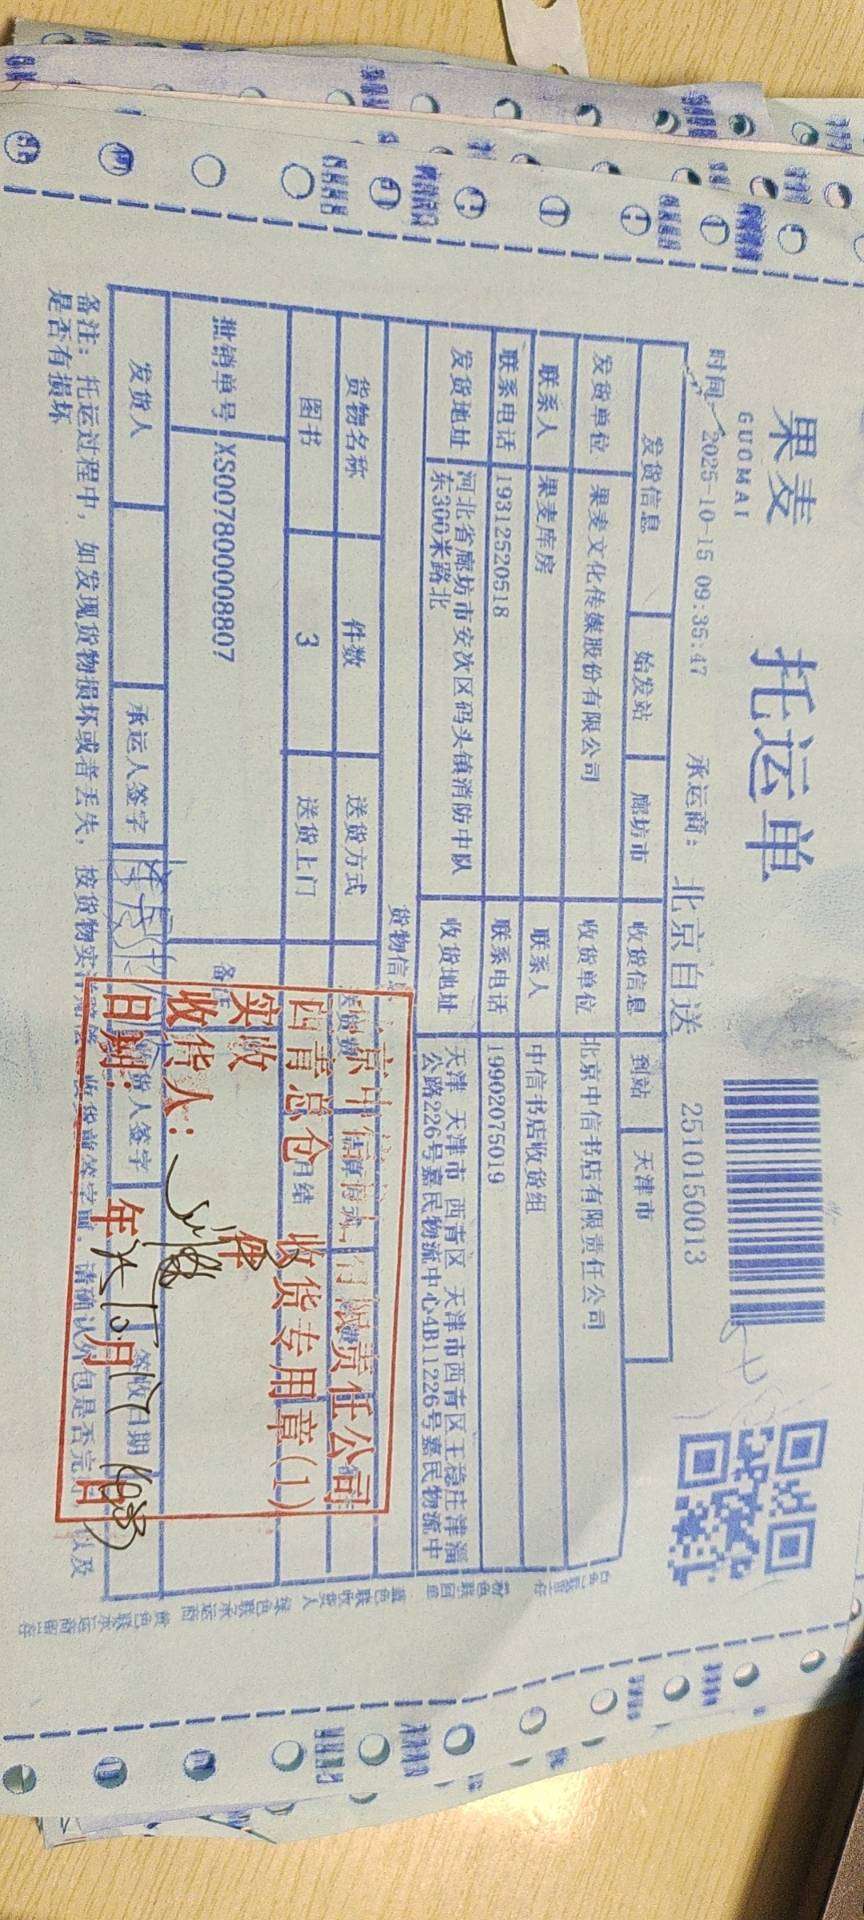 果麦
GUOMAI
托运单
时间: 2025-10-15 09:35:47 承运商: 北京自送 2510150013
发货信息 始发站 廊坊市 收货信息 到站 天津市
发货单位 果麦文化传媒股份有限公司 收货单位 北京中信书店有限责任公司
联系人 果麦库房 联系人 中信书店收货组
联系电话 19312520518 联系电话 19902075019
发货地址 河北省廊坊市安次区码头镇消防中队东300米路北 收货地址 天津 天津市 西青区 天津市西青区王稳庄津淄公路226号嘉民物流中心4B11226号嘉民物流中
货物信息
货物名称 件数 送货方式
图书 3 送货上门 月结
批销单号 XS007800008807 备注
发货人 承运人签字 收货人签字 签收日期
备注: 托运过程中, 如发现货物损坏或者丢失, 按货物实 收货前签字前, 请确认外包是否完 以及
是否有损坏
京中信 有限责任公司
西青总仓 收货专用章(1)
实收 件
收货人:
日期: 年 月 17 日
白色联留存
粉色联回单
蓝色联收货人
绿色联承运商
黄色联承运商留存